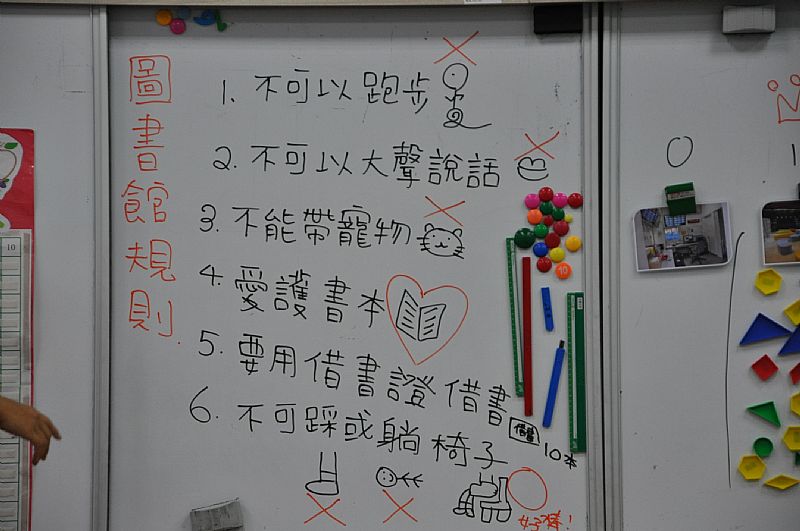 圖書館規則
1. 不可以跑步
2. 不可以大聲說話
3. 不能帶寵物
4. 愛護書本
5. 要用借書證借書
借書 10本
6. 不可踩或躺椅子
0
1
10
10